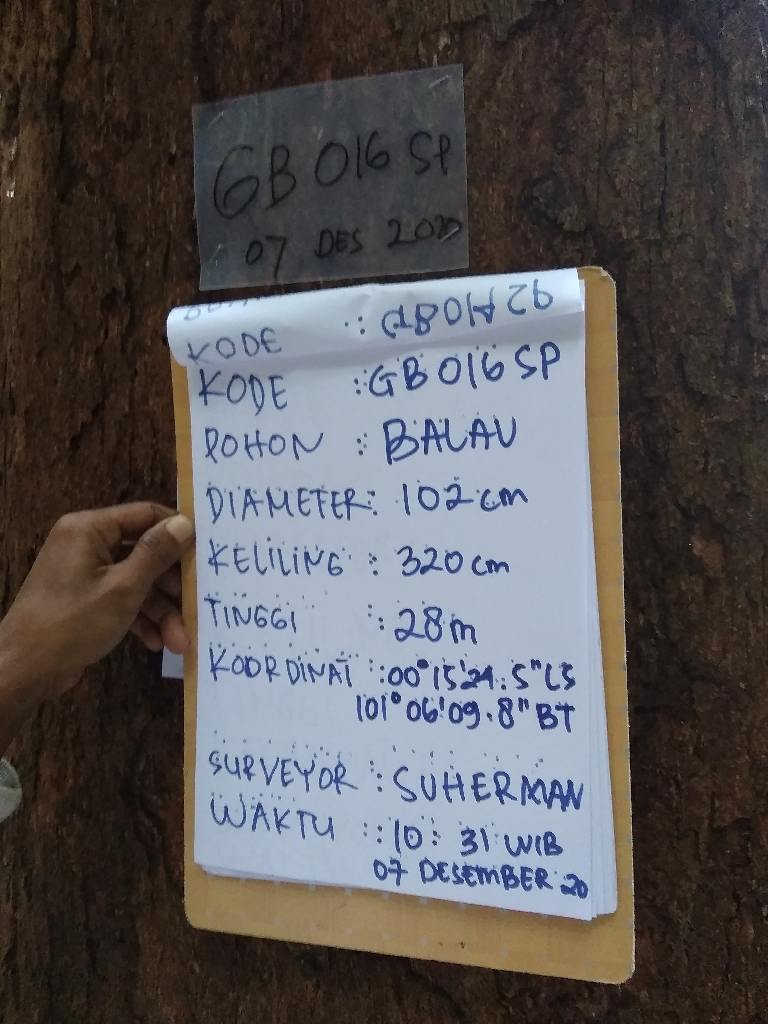 GB 016 SP
07 DES 2020
KODE :
KODE : GB 016 SP
POHON : BALAU
DIAMETER : 102 cm
KELILING : 320 cm
TINGGI : 28 m
KOORDINAT : 00° 15' 24.5" LS
101° 06' 09.8" BT
SURVEYOR : SUHERMAN
WAKTU : 10 : 31 WIB
07 DESEMBER 20